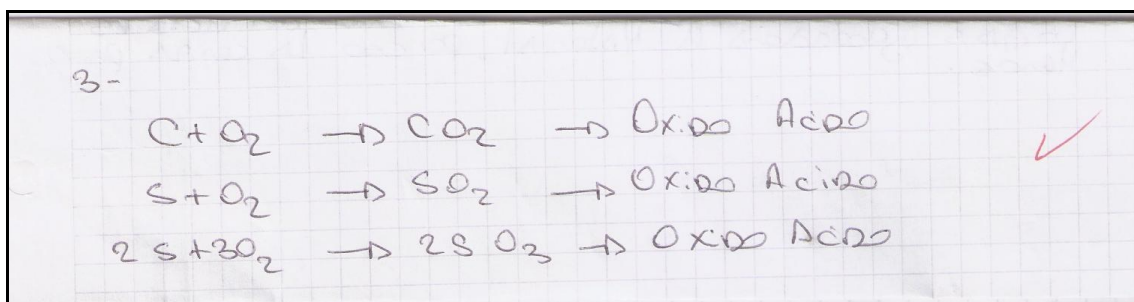 3-
C + O₂ → CO₂ → Oxido Acido
S + O₂ → SO₂ → Oxido Acido
2 S + 3O₂ → 2 S O₃ → Oxido Acido